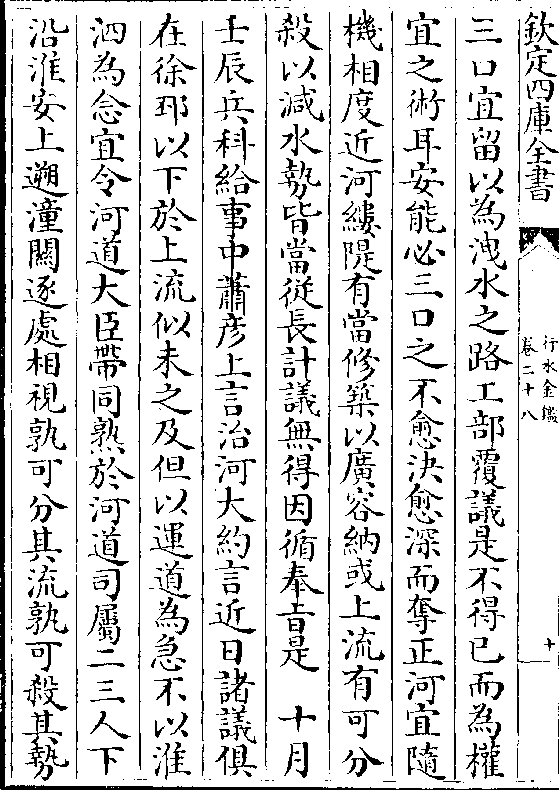 欽定四庫全書
行水金鑑
卷二十八
十
三口宜留以為洩水之路工部覆議是不得已而為權
宜之術耳安能必三口之不愈決愈深而奪正河宜隨
機相度近河縷隄有當修築以廣容納或上流有可分
殺以減水勢皆當從長計議無得因循奉㫖是　十月
壬辰兵科給事中蕭彦上言治河大約言近日諸議俱
在徐邳以下於上流似未之及但以運道為急不以淮
泗為念宜令河道大臣帶同熟於河道司屬二三人下
沿淮安上遡潼關逐處相視孰可分其流孰可殺其勢